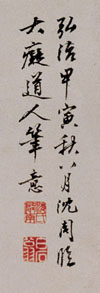 弘治甲寅秋八月沈周臨
大癡道人筆意